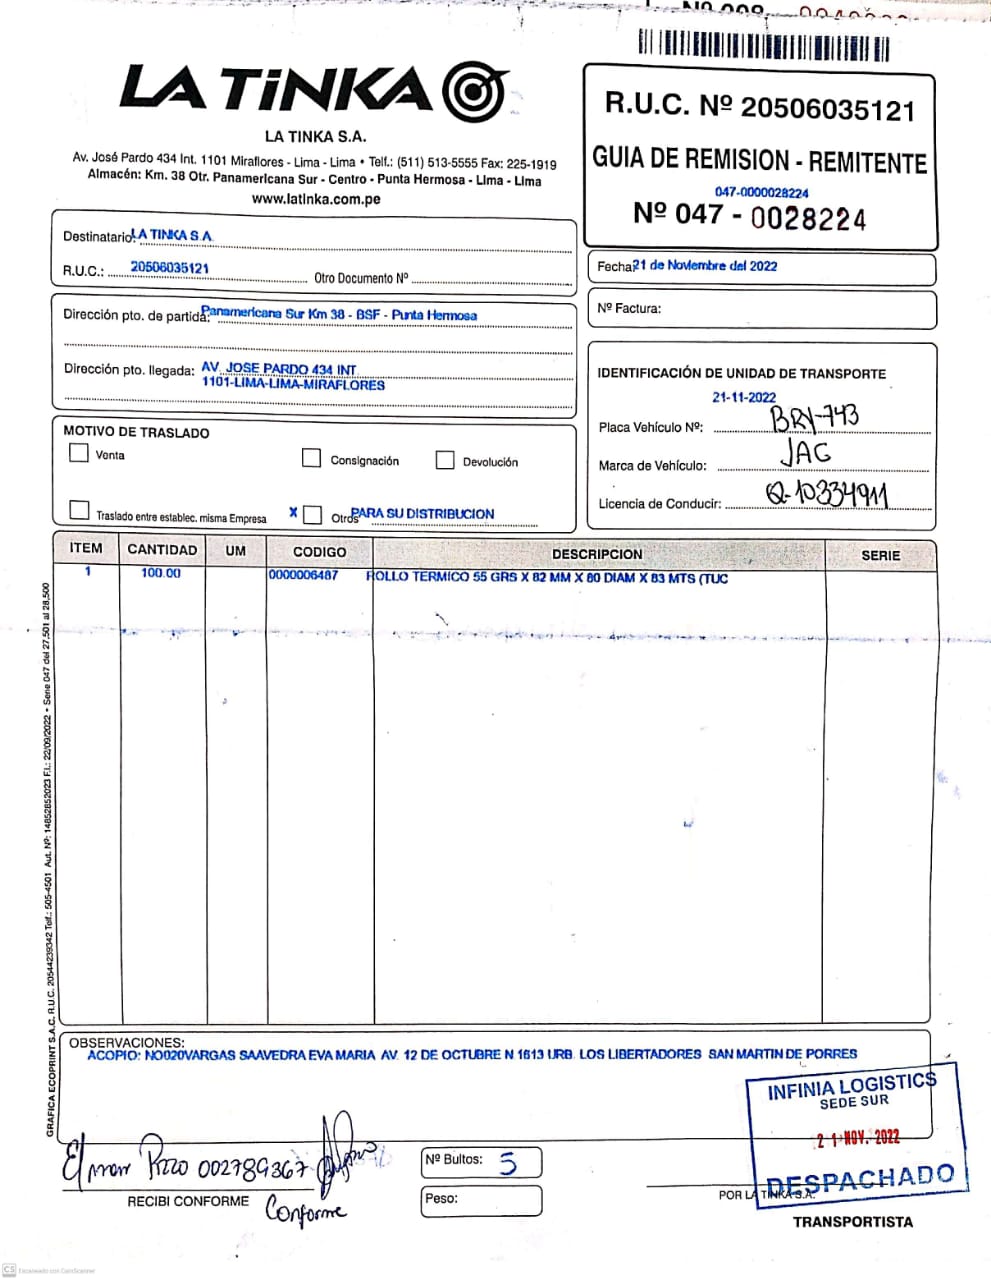 LA TiNKA
LA TINKA S.A.
Av. José Pardo 434 Int. 1101 Miraflores - Lima - Lima • Telf.: (511) 513-5555 Fax: 225-1919
Almacén: Km. 38 Otr. Panamericana Sur - Centro - Punta Hermosa - Lima - Lima
www.latinka.com.pe
R.U.C. Nº 20506035121
GUIA DE REMISION - REMITENTE
047-0000028224
Nº 047 - 0028224
Destinatario: LA TINKA S.A.
R.U.C.: 20506035121 Otro Documento Nº
Fecha: 21 de Noviembre del 2022
Nº Factura:
Dirección pto. de partida: Panamericana Sur Km 38 - BSF - Punta Hermosa
Dirección pto. llegada: AV. JOSE PARDO 434 INT.
1101-LIMA-LIMA-MIRAFLORES
IDENTIFICACIÓN DE UNIDAD DE TRANSPORTE
21-11-2022
Placa Vehículo Nº: BRY-743
Marca de Vehículo: JAC
Licencia de Conducir: Q-10334911
MOTIVO DE TRASLADO
Venta Consignación Devolución
Traslado entre establec. misma Empresa X Otros PARA SU DISTRIBUCION
ITEM CANTIDAD UM CODIGO DESCRIPCION SERIE
1 100.00 0000006487 ROLLO TERMICO 55 GRS X 82 MM X 80 DIAM X 83 MTS (TUC
GRAFICA ECOPRINT S.A.C. R.U.C. 20544239342 Telf.: 505-4501 Aut. Nº: 14852852023 F.I.: 22/09/2022 • Serie 047 del 27,501 al 28,500
OBSERVACIONES:
ACOPIO: NO020VARGAS SAAVEDRA EVA MARIA AV. 12 DE OCTUBRE N 1613 URB. LOS LIBERTADORES SAN MARTIN DE PORRES
INFINIA LOGISTICS
SEDE SUR
21 NOV. 2022
DESPACHADO
002789367
RECIBI CONFORME
Conforme
Nº Bultos: 5
Peso:
POR LA TINKA S.A.
TRANSPORTISTA
CS Escaneado con CamScanner